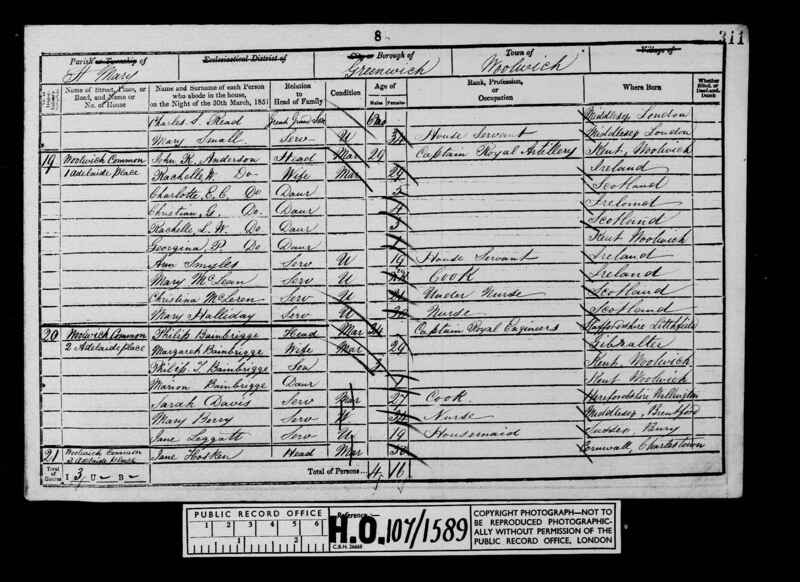 8
311
Parish or Township of
St Mary
Ecclesiastical District of
City or Borough of
Greenwich
Town of
Woolwich
Village of
Name of Street, Place, or Road, and Name or No. of House
Name and Surname of each Person who abode in the house, on the Night of the 30th March, 1851
Relation to Head of Family
Condition
Age of
Males Females
Rank, Profession, or Occupation
Where Born
Whether Blind, or Deaf-and-Dumb
Charles S. Read Grand Son Middlesex London
Mary Small Serv U 34 House Servant Middlesex London
19 Woolwich Common John R. Anderson Head Mar 29 Captain Royal Artillery Kent, Woolwich
1 Adelaide Place Rachelle W. Do Wife Mar 29 Ireland
Charlotte E. C. Do Daur 5 Scotland
Christian, G. Do. Daur 4 Ireland
Rachelle, L. W. Do Daur 3 Scotland
Georgina, P. Do Daur 1 Kent Woolwich
Ann Smyles Serv U 19 House Servant Ireland
Mary McLean Serv U Cook Ireland
Christina McLeren Serv U Under Nurse Scotland
Mary Halliday Serv U Nurse Scotland
20 Woolwich Common Philip Bainbrigge Head Mar 34 Captain Royal Engineers Staffordshire Litchfield
2 Adelaide place Margaret Bainbrigge Wife Mar 29 Gibralter
Philip T. Bainbrigge Son 3 Kent, Woolwich
Marion Bainbrigge Daur 1 Kent Woolwich
Sarah Davis Serv Mar 27 Cook Herefordshire Wellington
Mary Berry Serv Nurse Middlesex, Brentford
Jane Leggatt Serv U 19 Housemaid Sussex, Bury
21 Woolwich Common Jane Hosken Head Mar Cornwall, Charlestown
3 Adelaide Place
Total of Houses
I 3 U – B –
Total of Persons... 4 16
PUBLIC RECORD OFFICE
1 2 3 4 5 6
1 2
Reference:-
H.O. 107/1589
C.R.N. 26668
COPYRIGHT PHOTOGRAPH—NOT TO BE REPRODUCED PHOTOGRAPHICALLY WITHOUT PERMISSION OF THE PUBLIC RECORD OFFICE, LONDON